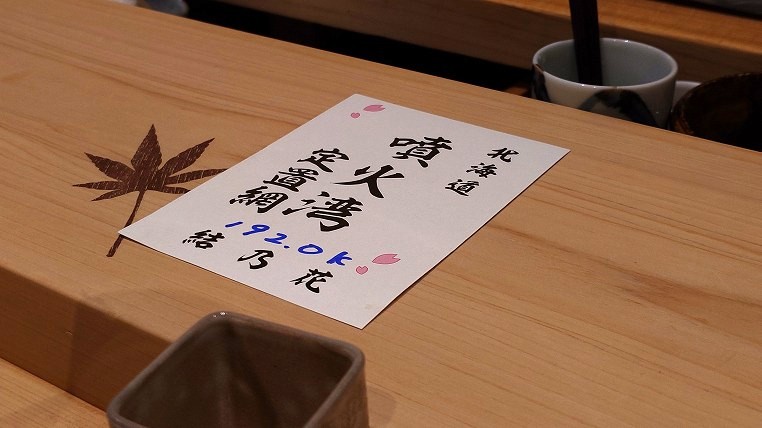 北海道
噴火湾
定置網
192.0k
結乃花